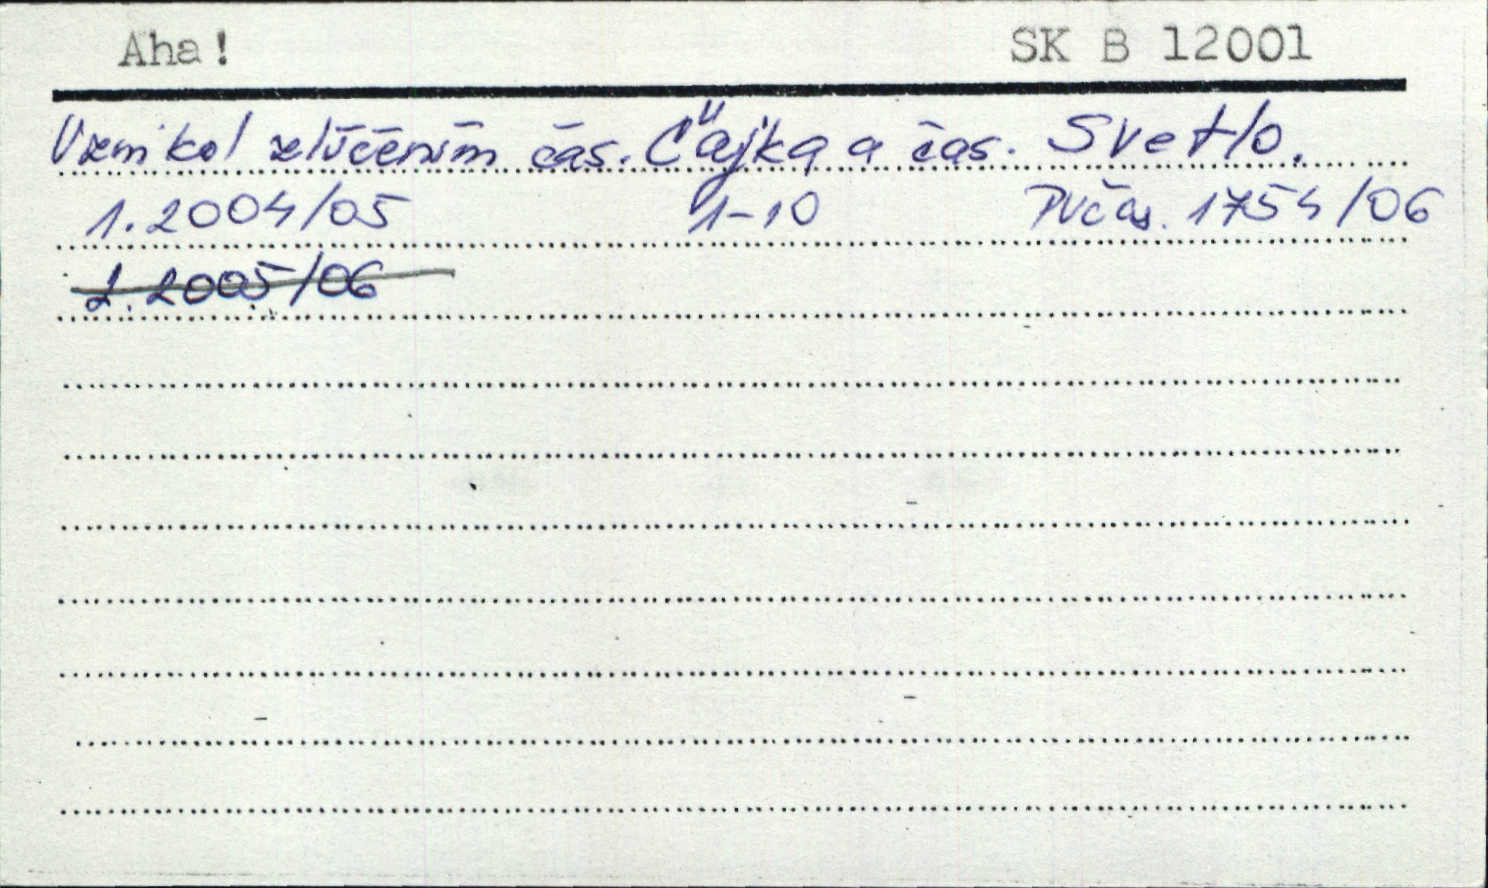 Aha! SK B 12001
Vznikol zlúčením čas. Čajka a čas. Svetlo.
1. 2004/05 1-10 PVčas. 1754/06
2. 2005/06